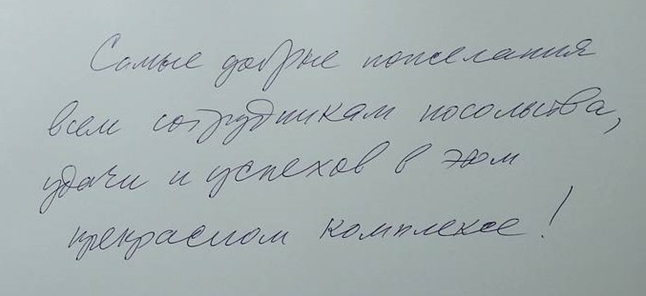 Самые добрые пожелания
всем сотрудникам посольства,
удачи и успехов в этом
прекрасном комплексе!